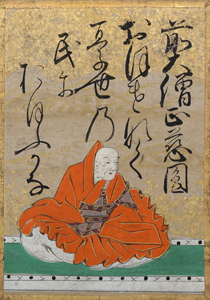 前大僧正慈圓
おほけなく
うき世乃
民尓
おほふかな